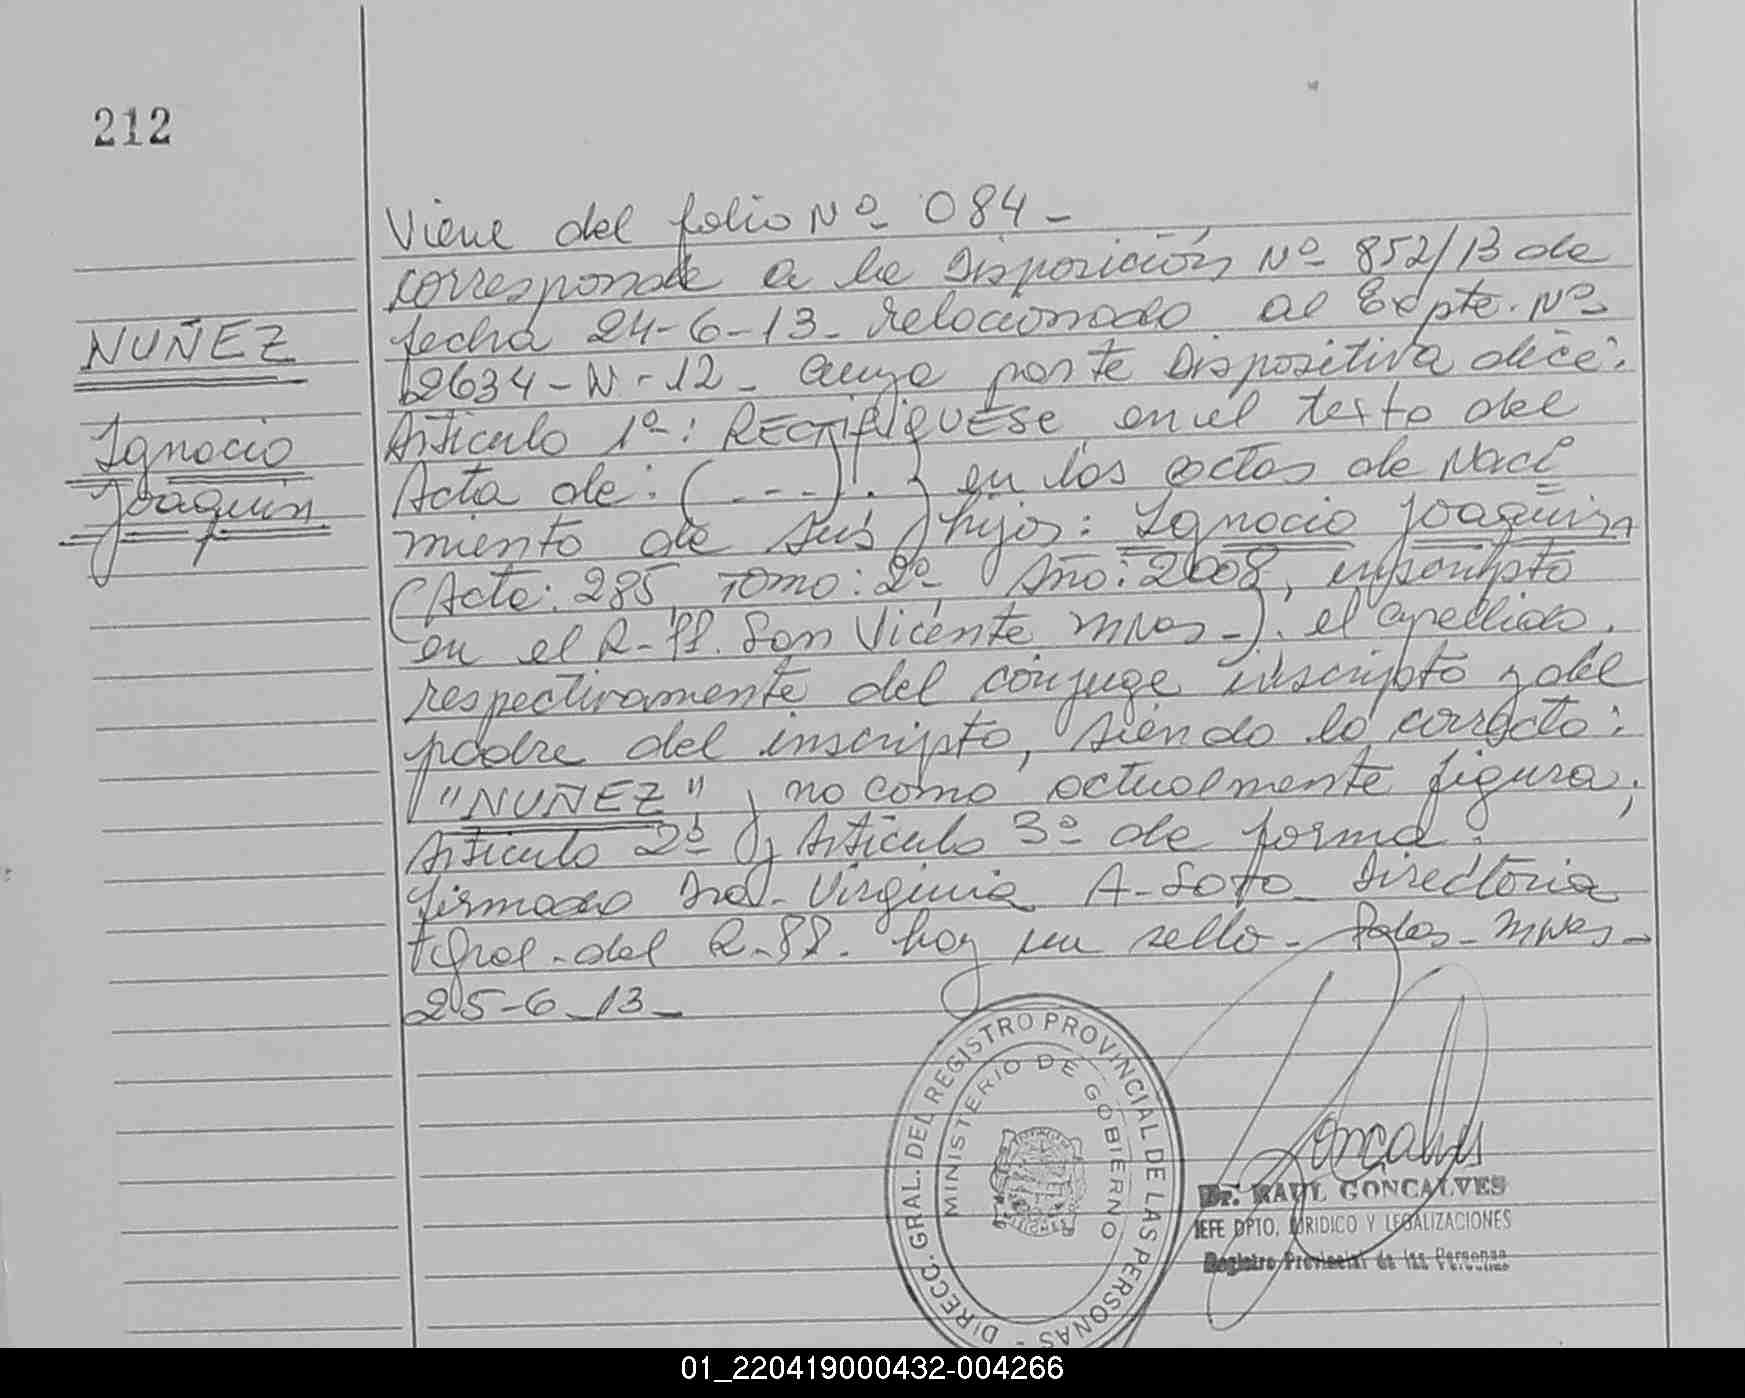 212
Viene del folio Nº 084 -
corresponde a la Disposición Nº 852/13 de
fecha 24-6-13 - relacionado al Expte. Nº
2634-N-12 - cuya parte Dispositiva dice:
Articulo 1º: RECTIFIQUESE en el texto del
Acta de: (---). y en las actas de Naci
miento de sus hijos: Ignacio Joaquin
(Acta: 285, Tomo: 2º, Año: 2008, inscripto
en el R-PP. San Vicente Mnes-). el apellido.
respectivamente del cónjuge inscripto y del
padre del inscripto, siendo lo correcto:
"NUÑEZ", no como actualmente figura;
Articulo 2º y Articulo 3º de forma.
firmado Dra. Virginia A. Soto - Directora
Gral. del R-PP. hay un sello - Pdas - Mnes -
25-6-13 -
NUÑEZ
Ignacio
Joaquin
DIRECC. GRAL. DEL REGISTRO PROVINCIAL DE LAS PERSONAS -
MINISTERIO DE GOBIERNO
Goncalves
Dr. RAUL GONCALVES
JEFE DPTO. JURIDICO Y LEGALIZACIONES
Registro Provincial de las Personas
01_220419000432-004266